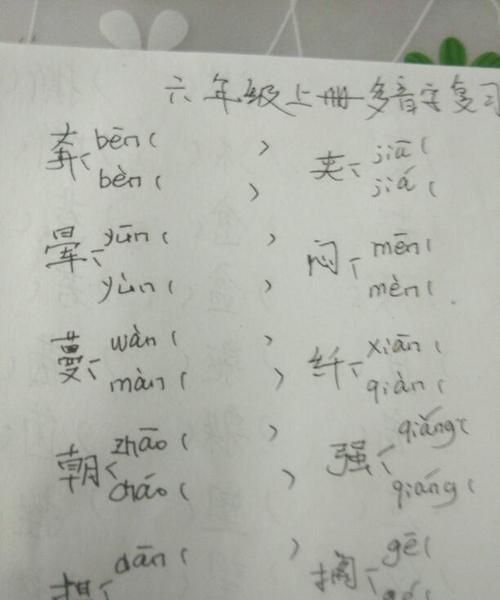 六年级上册多音字复习
奔 bēn( )
bèn( )
夹 jiā(
jiá(
晕 yūn( )
yùn( )
闷 mēn(
mèn(
蔓 wàn( )
màn( )
纤 xiān(
qiàn(
朝 zhāo( )
cháo( )
强 qiǎng(
qiáng(
dān( )
gē(